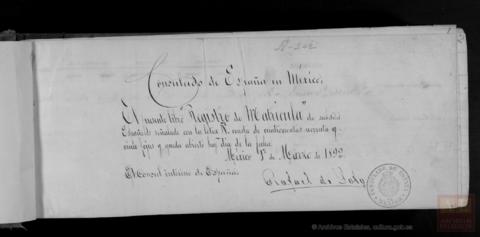 Consulado de España en México.
El presente libro "Registro de Matrícula" de súbditos
Españoles señalado con la letra consta de
fojas y queda abierto hoy día de la fecha.
México 1º de Marzo de 1892.
El Consul interino de España.
Rafael de
CONSULADO DE ESPAÑA
© Archivos Estatales, cultura.gob.es